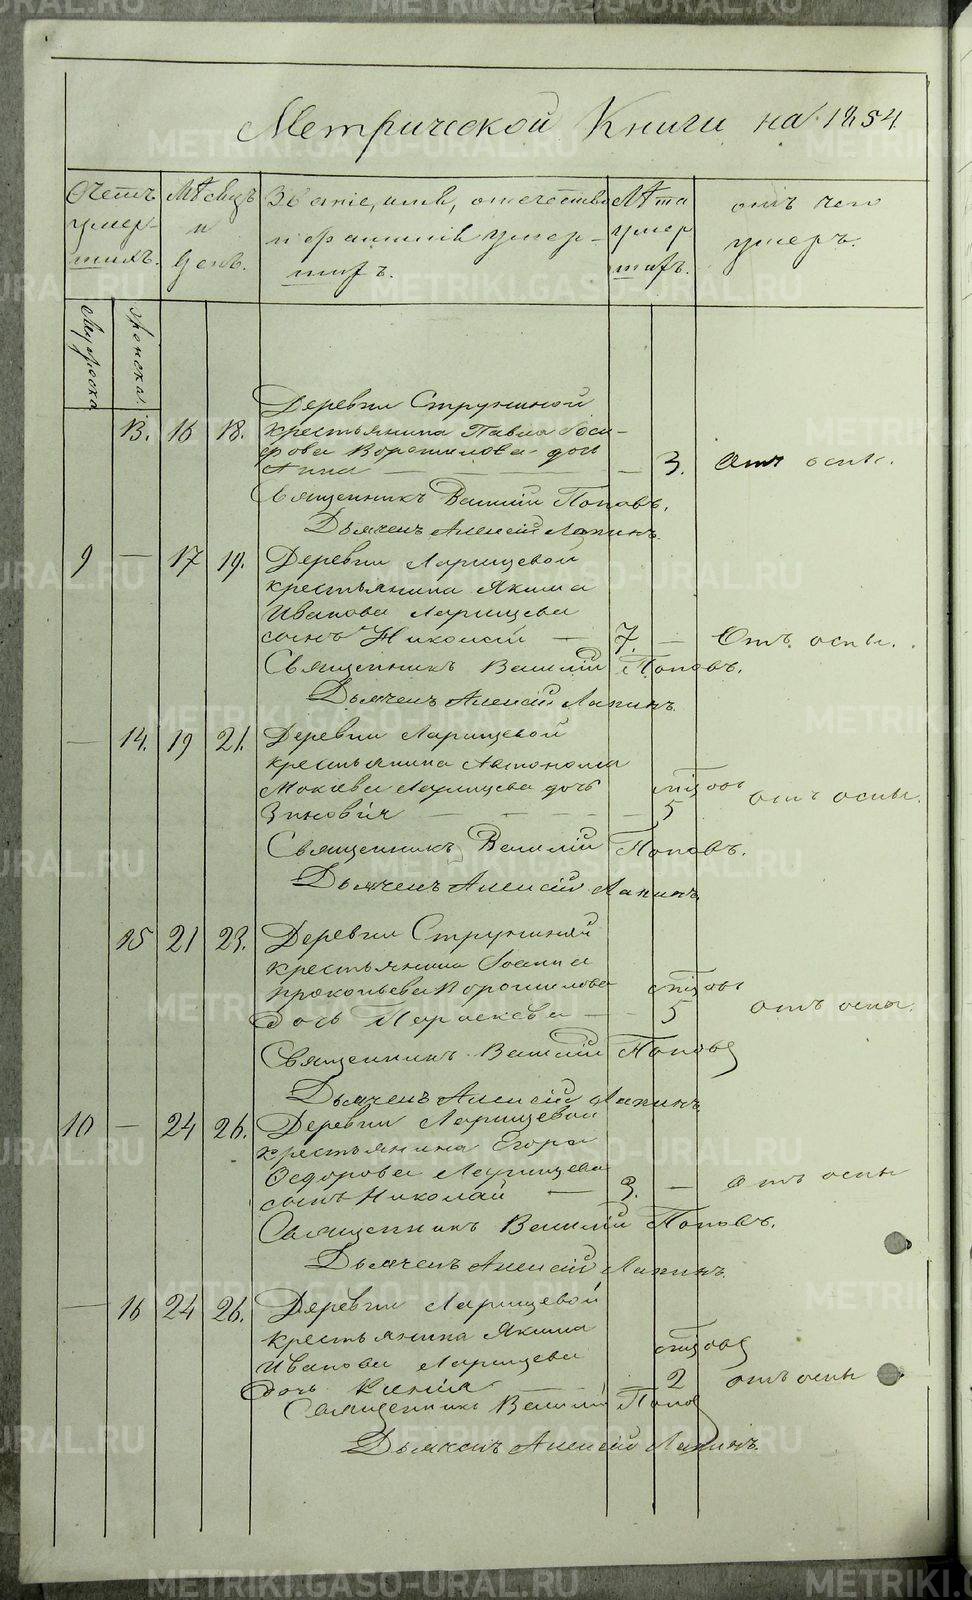 Метрической Книги на 1854.
Счетъ умер- шихъ.
Мѣсяцъ и день.
Званіе, имя, отчество и фамилія умер- шихъ.
Лѣта умер шихъ.
отъ чего умеръ.
Мужеска
Женска.
13. 16 18. Деревни Стружиной
крестьянина Павла
Ворошилова дочь
Анна — — 3. Отъ оспы.
Священникъ Василій Поповъ.
Дьячекъ Алексій Лапинъ.
9 — 17 19. Деревни Ларищевой
крестьянина Якима
Иванова Ларищева
сынъ Николай — 7. — Отъ оспы.
Священникъ Василій Поповъ.
Дьячекъ Алексій Лапинъ.
— 14. 19 21. Деревни Ларищевой
крестьянина Автонома
Мокіева Ларищева дочь
5 отъ оспы.
Священникъ Василій Поповъ.
Дьячекъ Алексій Лапинъ
15 21 23. Деревни Стружиной
крестьянина Іоанна
Прокопьева Ворошилова
дочь Параскева — — 5 отъ оспы.
Священникъ Василій Поповъ
Дьячекъ Алексій Лапинъ
10 — 24 26. Деревни Ларищевой
крестьянина Егора
Ѳедорова Ларищева
сынъ Николай — 3. — Отъ оспы
Священникъ Василій Поповъ.
Дьячекъ Алексій Лапинъ.
— 16 24 26. Деревни Ларищевой
крестьянина Якима
Иванова Ларищева
дочь Ксенія — 2 отъ оспы
Священникъ Василій Попов
Дьячекъ Алексій Лапинъ.
METRIKI.GASO-URAL.RU